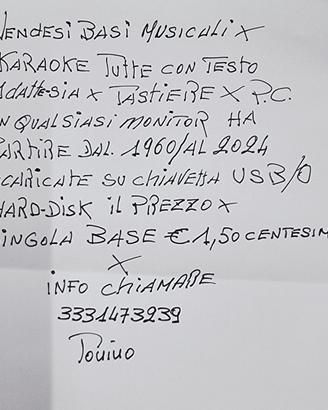 VENDESI BASI MUSICALI X
KARAOKE TUTTE CON TESTO
ADATTE-SIA X TASTIERE X P.C.
IN QUALSIASI MONITOR HA
PARTIRE DAL. 1960/AL 2024
SCARICATE SU CHIAVETTA USB/O
HARD-DISK IL PREZZO X
SINGOLA BASE € 1,50 CENTESIM
X
INFO CHIAMARE
3331473239
Tonino